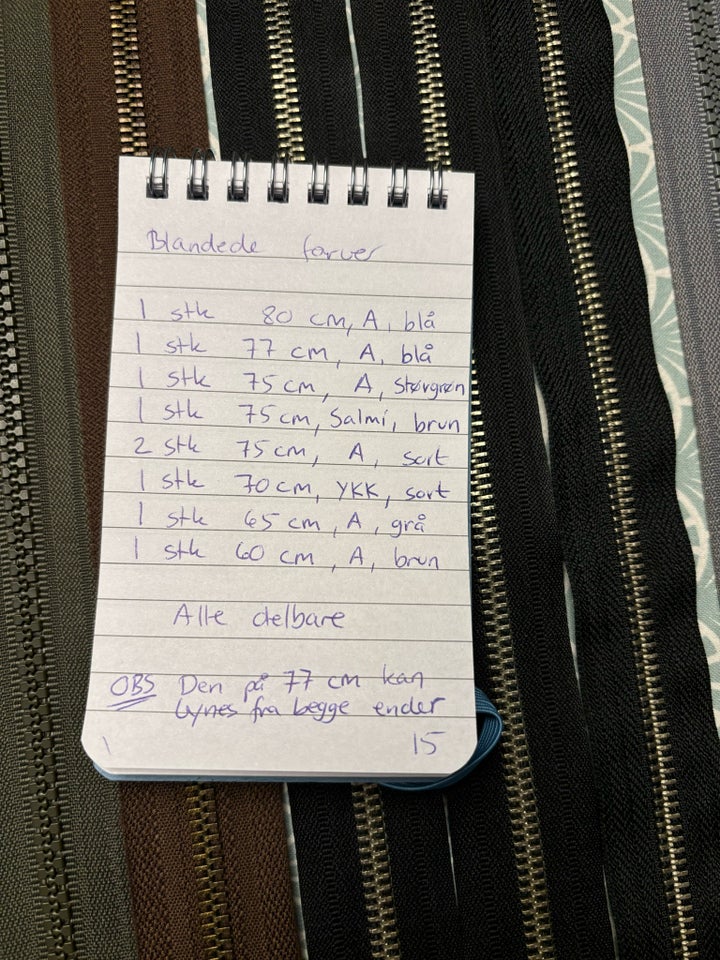 Blandede farver
1 stk 80 cm, A, blå
1 stk 77 cm, A, blå
1 stk 75 cm, A, støvgrøn
1 stk 75 cm, Salmi, brun
2 stk 75 cm, A, sort
1 stk 70 cm, YKK, sort
1 stk 65 cm, A, grå
1 stk 60 cm, A, brun
Alle delbare
OBS Den på 77 cm kan
lynes fra begge ender
15